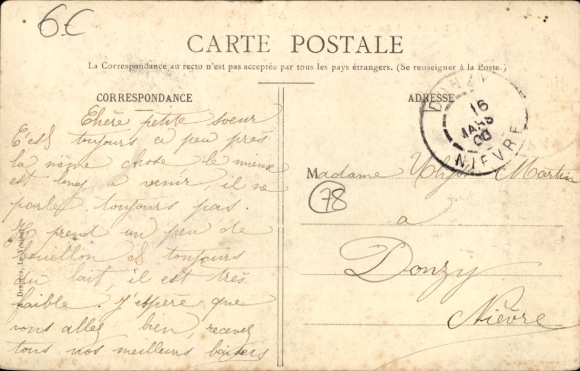 6€
CARTE POSTALE
La Correspondance au recto n'est pas acceptée par tous les pays étrangers. (Se renseigner à la Poste.)
CORRESPONDANCE
Chère petite soeur
C'est toujours a peu près
la même chose le mieux
est long a venir, il ne
parle toujours pas.
Il prend un peu de
bouillon et toujours
du lait, il est très
faible. J'espère que
vous allez bien, recevez
tous nos meilleurs baisers
ADRESSE
DONZY
16
MARS
NIÈVRE
Madame Martin
78
a
Donzy
Nièvre